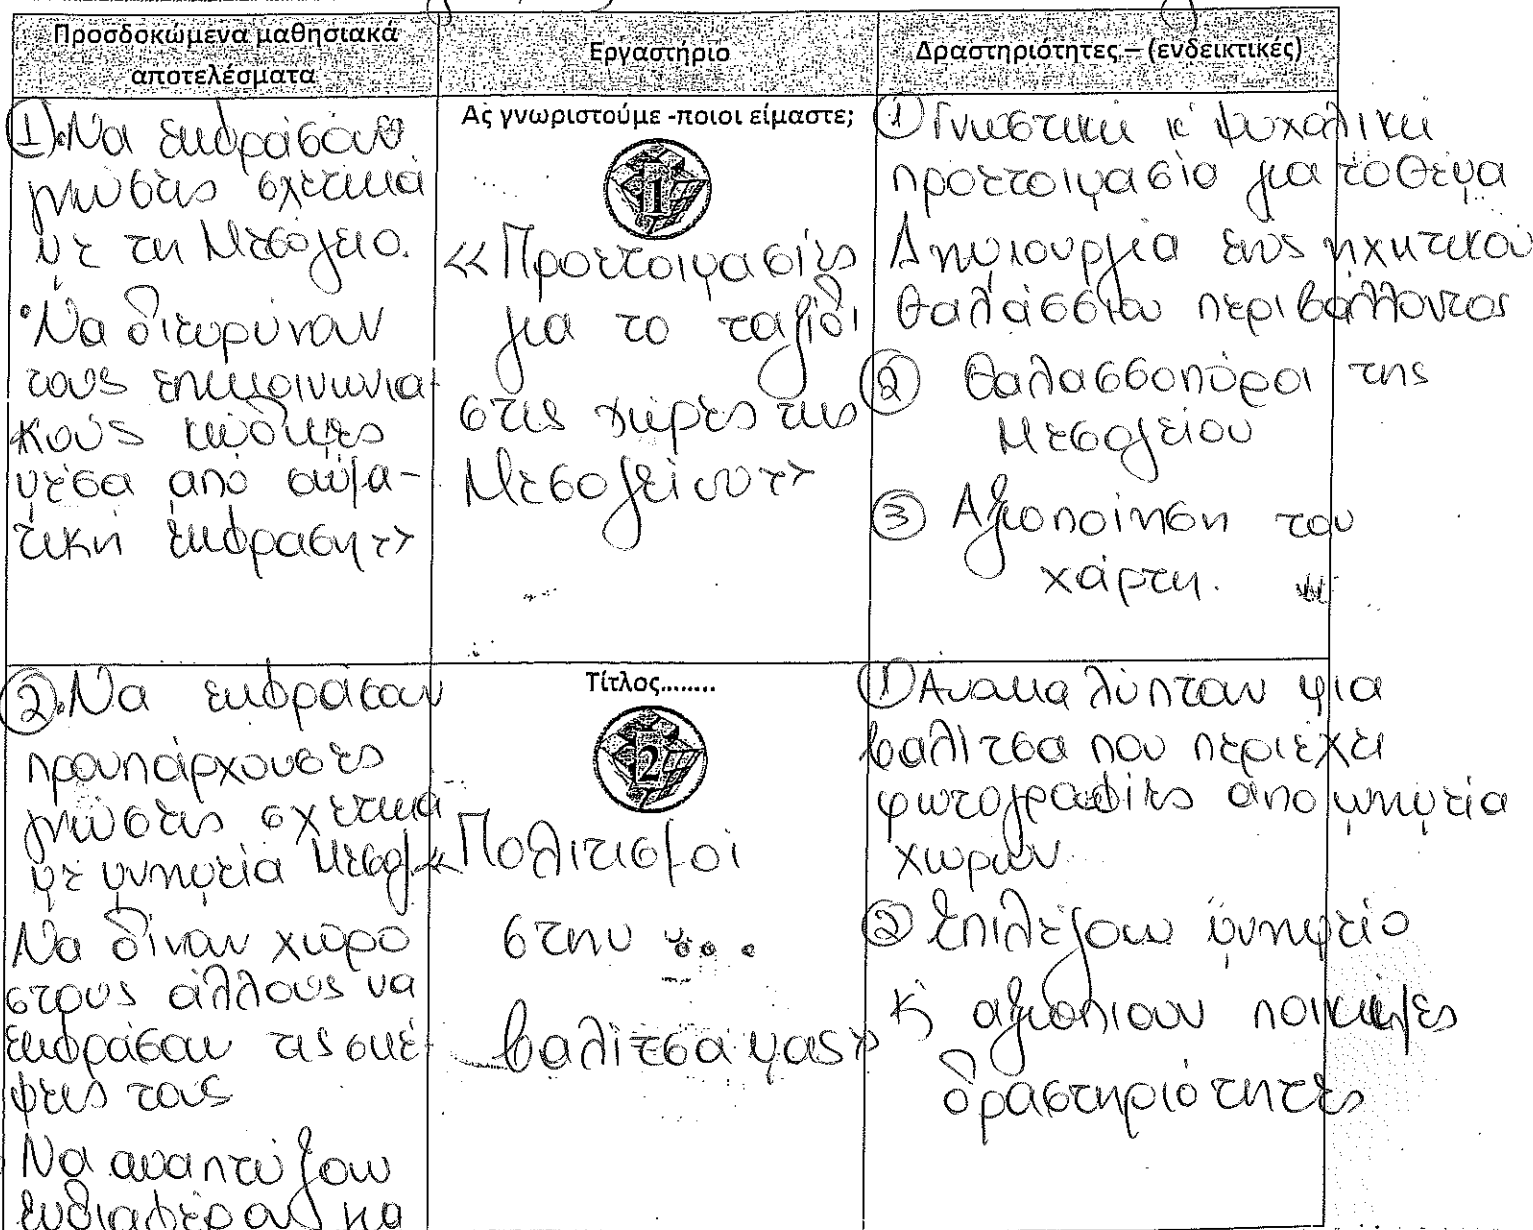 Προσδοκώμενα μαθησιακά
αποτελέσματα
Εργαστήριο
Δραστηριότητες – (ενδεικτικές)
① Να εκφράσουν
γνώσεις σχετικά
με τη Μεσόγειο.
• Να διευρύνουν
τους επικοινωνια-
κούς κώδικες
μέσα από σωμα-
τική έκφραση>>
Ας γνωριστούμε -ποιοι είμαστε;
1
<<Προετοιμασίες
για το ταξίδι
στις χώρες της
Μεσογείου>>
① Γνωστική κ' ψυχολική
προετοιμασία για το θέμα
Δημιουργία ενός ηχητικού
θαλάσσιου περιβάλλοντος
② Θαλασσοπόροι της
Μεσογείου
③ Αξιοποίηση του
χάρτη.
② Να εκφράσουν
προυπάρχουσες
γνώσεις σχετικά
με μνημεία Μεσογ.
Να δίνουν χώρο
στους άλλους να
εκφράσουν τις σκέ-
ψεις τους
Να αναπτύξουν
ενδιαφέρον
Τίτλος........
2
<<Πολιτισμοί
στην ...
βαλίτσα μας>>
① Ανακαλύπτουν μια
βαλίτσα που περιέχει
φωτογραφίες από μνημεία
χωρών
② Επιλέγουν μνημείο
κ' αξιοποιουν ποικίλες
δραστηριότητες